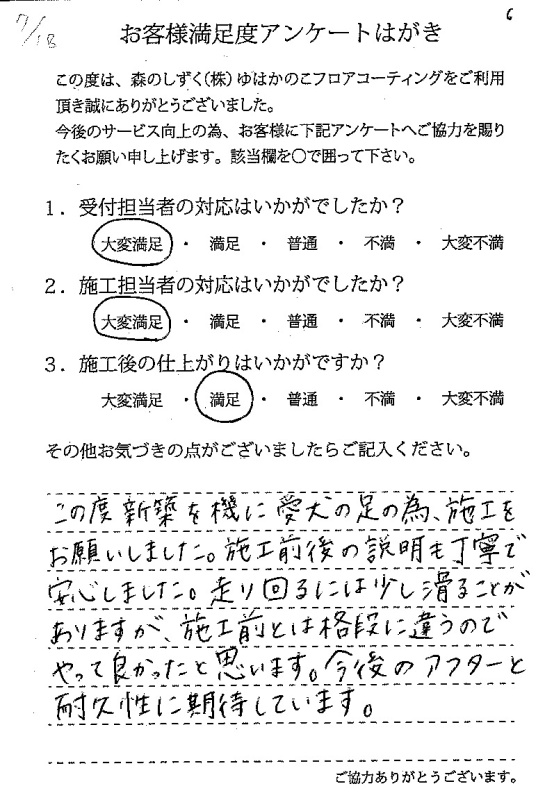 7/18
6
お客様満足度アンケートはがき
この度は、森のしずく(株)ゆはかのこフロアコーティングをご利用
頂き誠にありがとうございました。
今後のサービス向上の為、お客様に下記アンケートへご協力を賜り
たくお願い申し上げます。該当欄を○で囲って下さい。
1．受付担当者の対応はいかがでしたか？
大変満足 ・ 満足 ・ 普通 ・ 不満 ・ 大変不満
2．施工担当者の対応はいかがでしたか？
大変満足 ・ 満足 ・ 普通 ・ 不満 ・ 大変不満
3．施工後の仕上がりはいかがですか？
大変満足 ・ 満足 ・ 普通 ・ 不満 ・ 大変不満
その他お気づきの点がございましたらご記入ください。
この度新築を機に愛犬の足の為、施工を
お願いしました。施工前後の説明も丁寧で
安心しました。走り回るには少し滑ることが
ありますが、施工前とは格段に違うので
やって良かったと思います。今後のアフターと
耐久性に期待しています。
ご協力ありがとうございます。